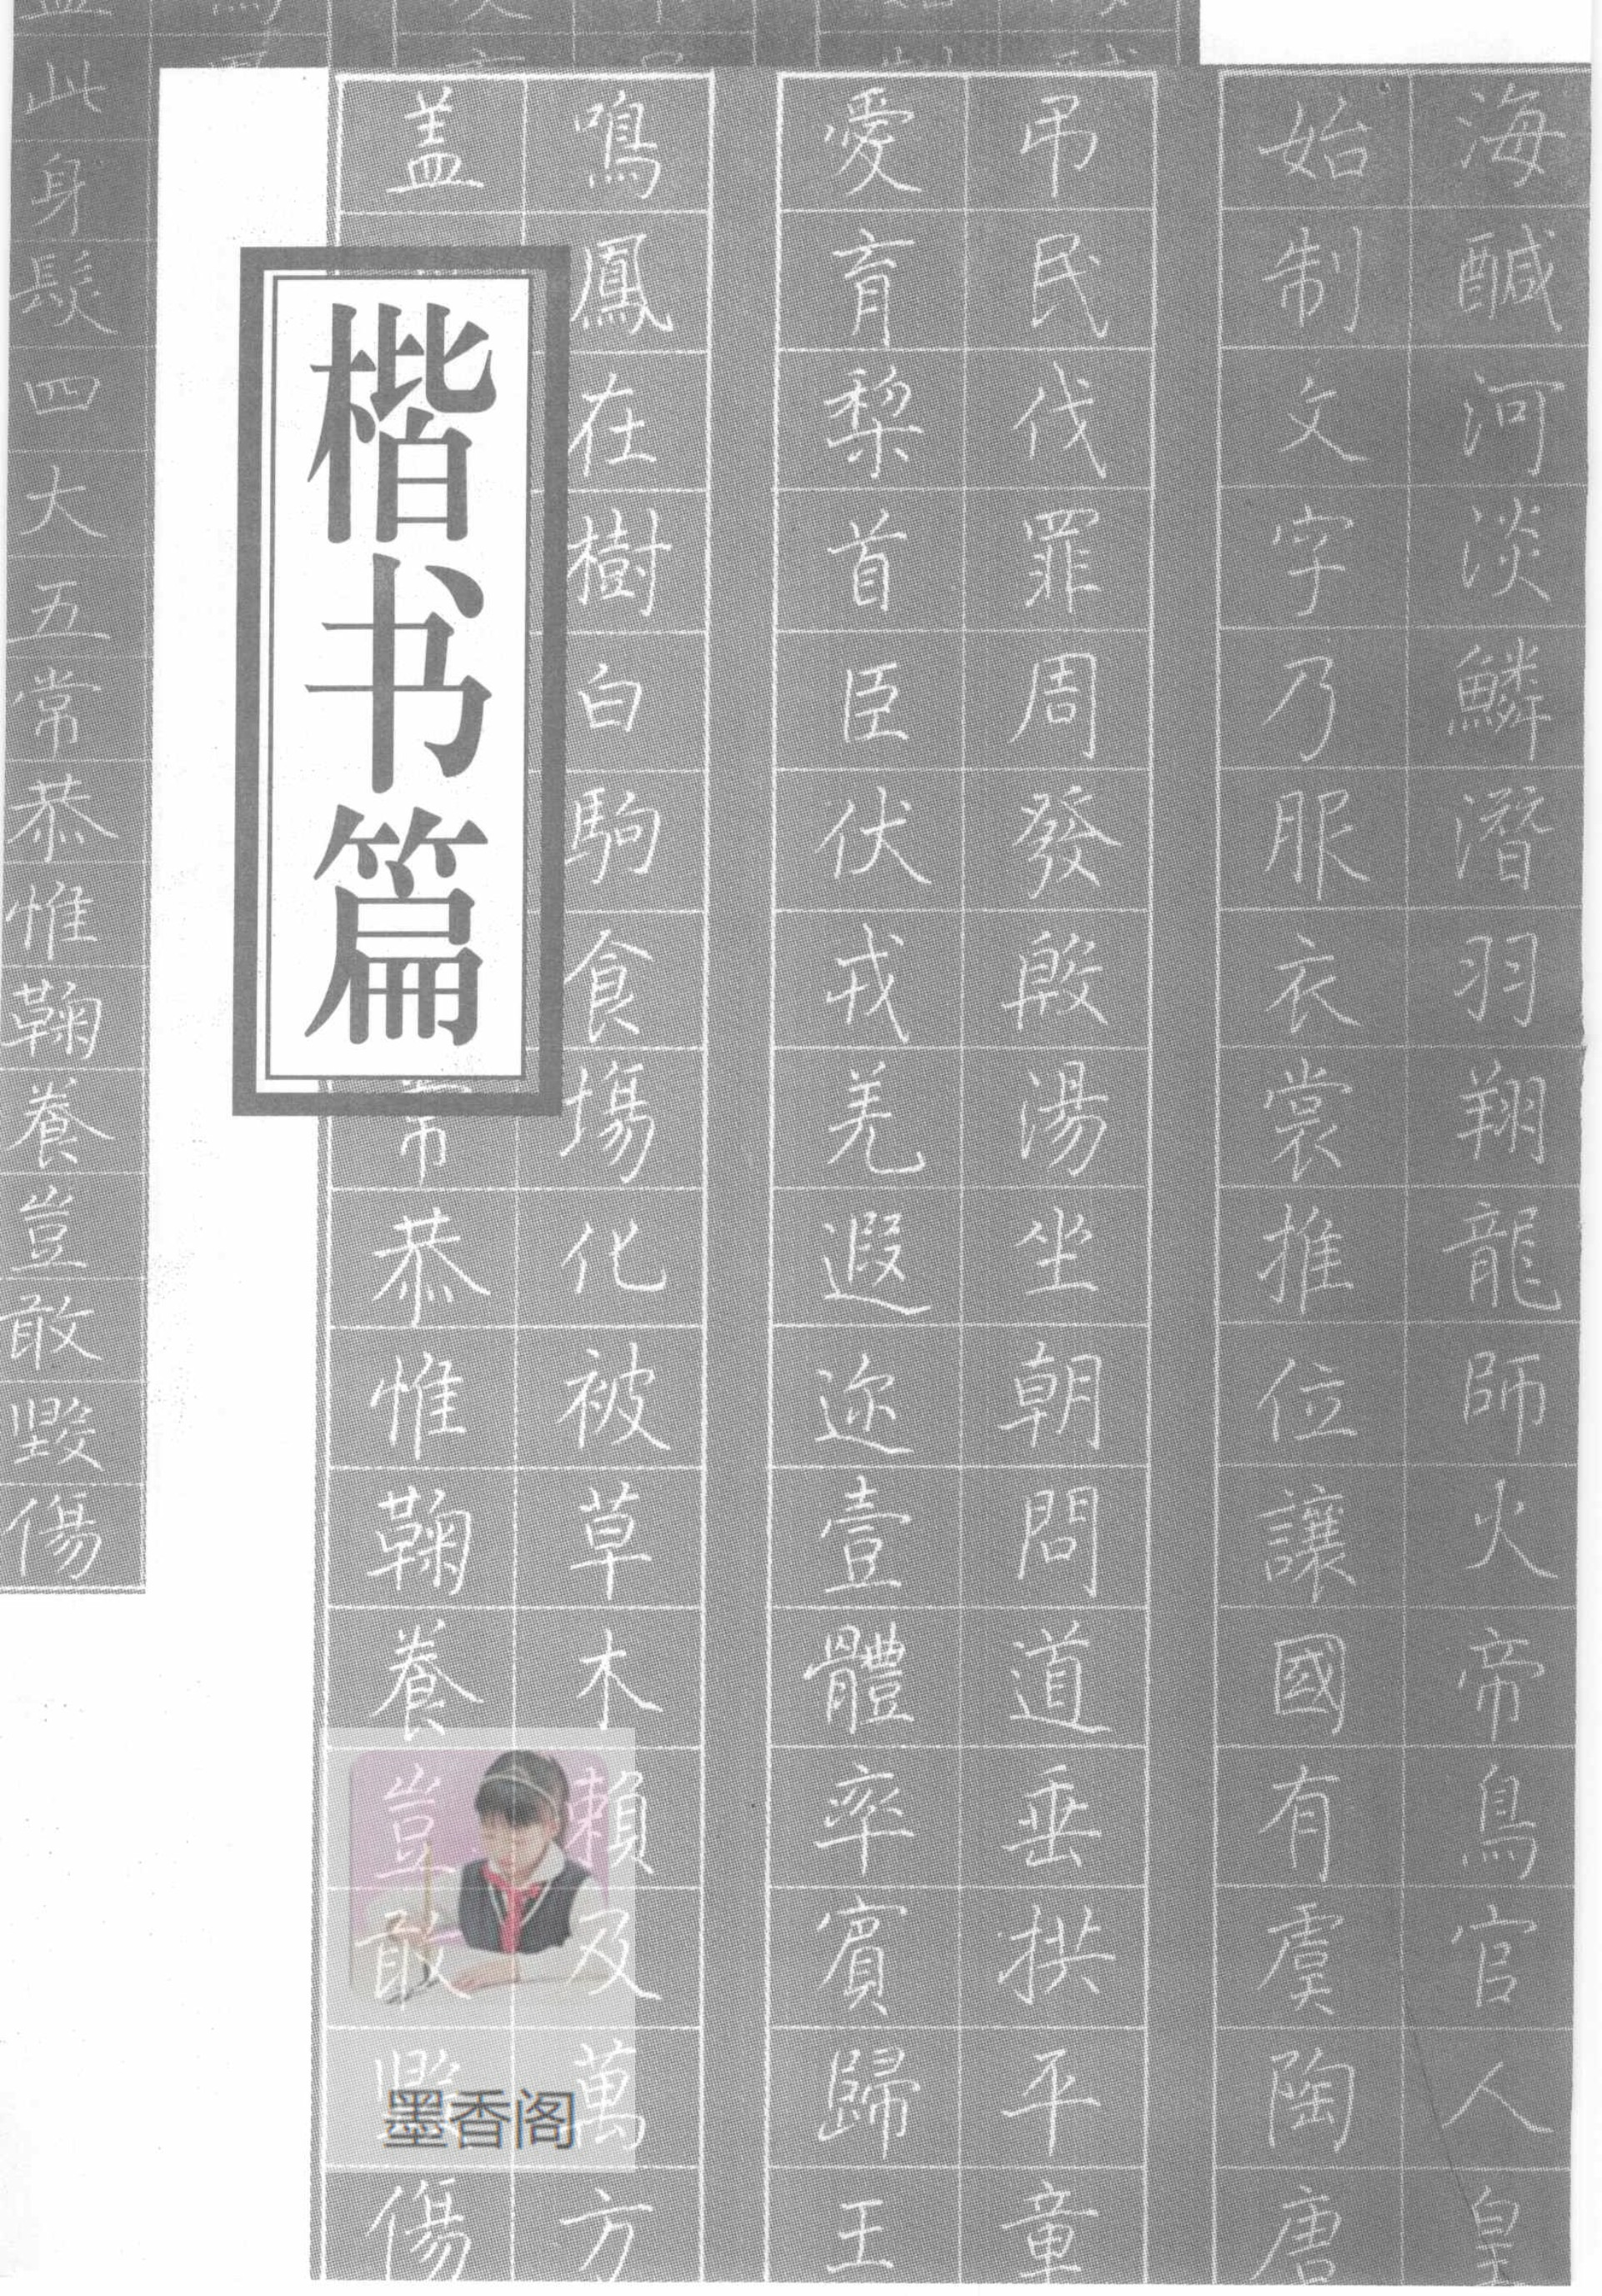 海鹹河淡鱗潛羽翔龍師火帝鳥官人皇
始制文字乃服衣裳推位讓國有虞陶唐
弔民伐罪周發殷湯坐朝問道垂拱平章
愛育黎首臣伏戎羌遐邇壹體率賓歸王
鳴鳳在樹白駒食場化被草木賴及萬方
蓋常恭惟鞠養豈敢毀傷
楷书篇
此身髮四大五常恭惟鞠養豈敢毀傷
墨香阁